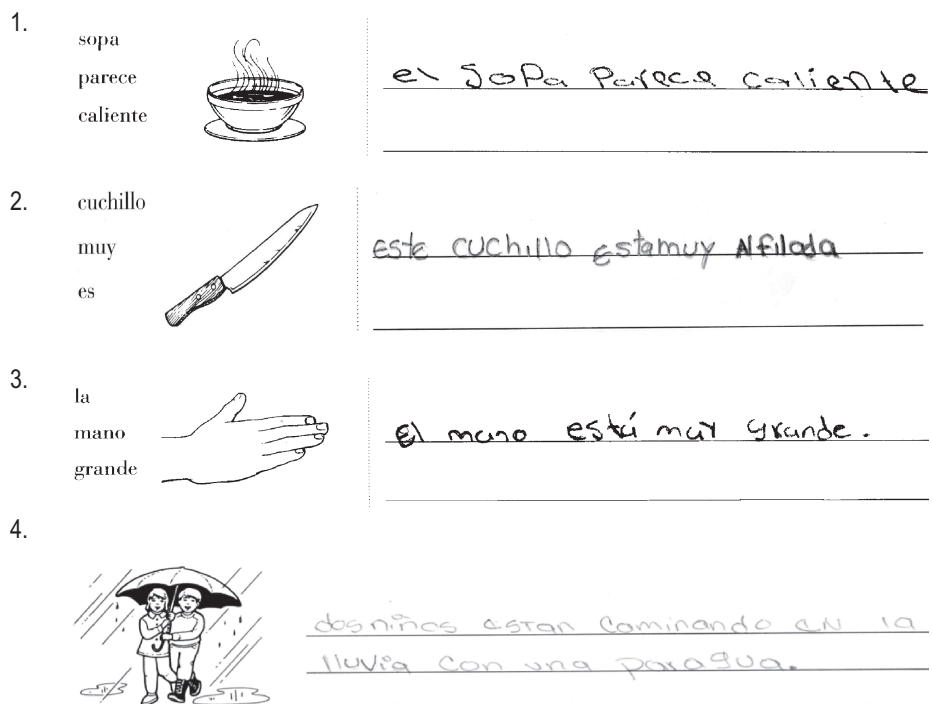 1.
sopa
parece
caliente
el sopa Parece caliente
2.
cuchillo
muy
es
Este cuchillo Estamuy Alfilada
3.
la
mano
grande
El mano está muy grande.
4.
dos niños estan Caminando en la
lluvia con una paragua.